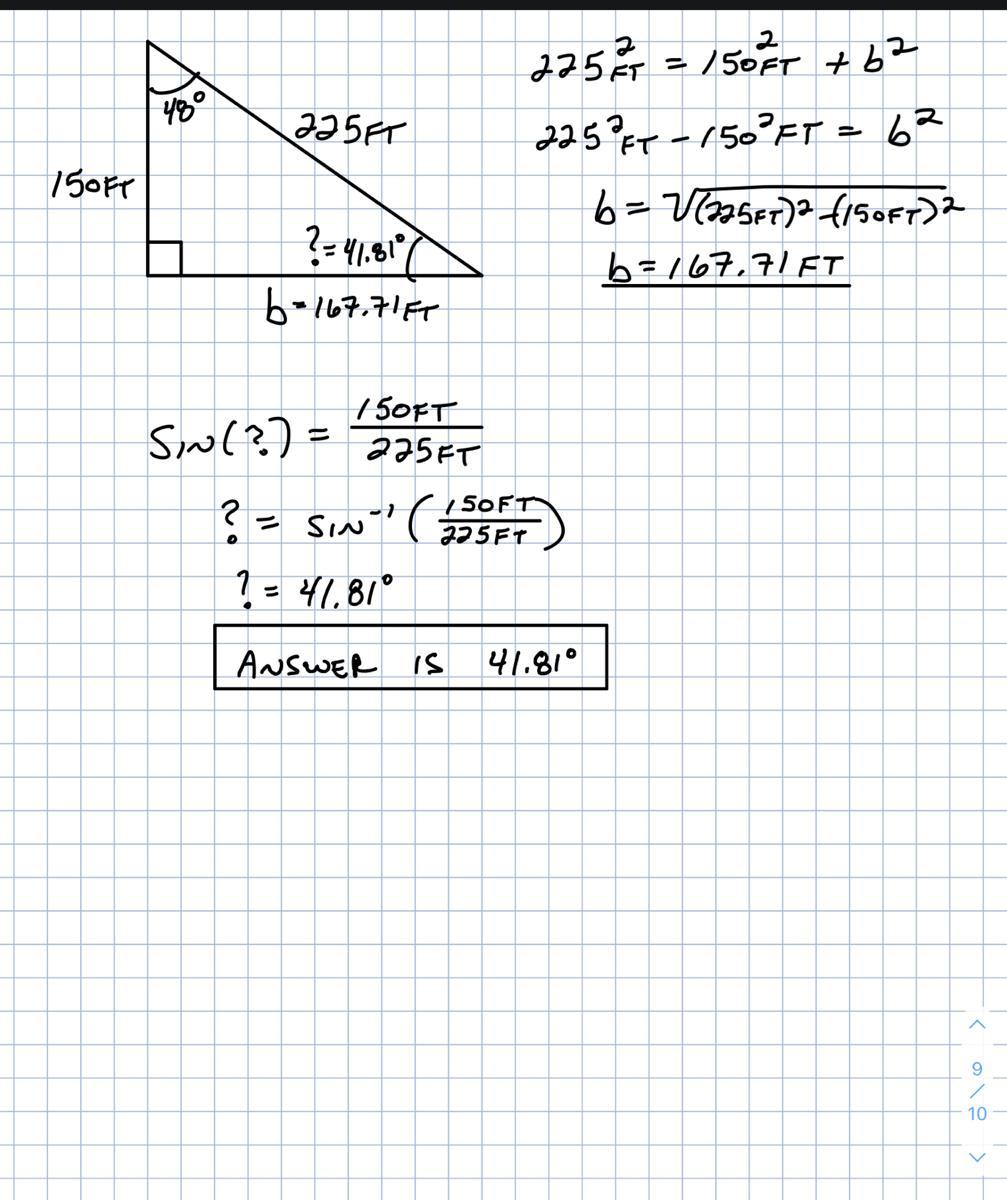 48°
225FT
150FT
?=41.81°
b=167.71FT
225²FT = 150²FT + b²
225²FT - 150²FT = b²
b = √(225FT)² - (150FT)²
b = 167.71 FT
SIN(?) = 150FT / 225FT
? = SIN⁻¹(150FT / 225FT)
? = 41.81°
ANSWER IS 41.81°
9
/
10